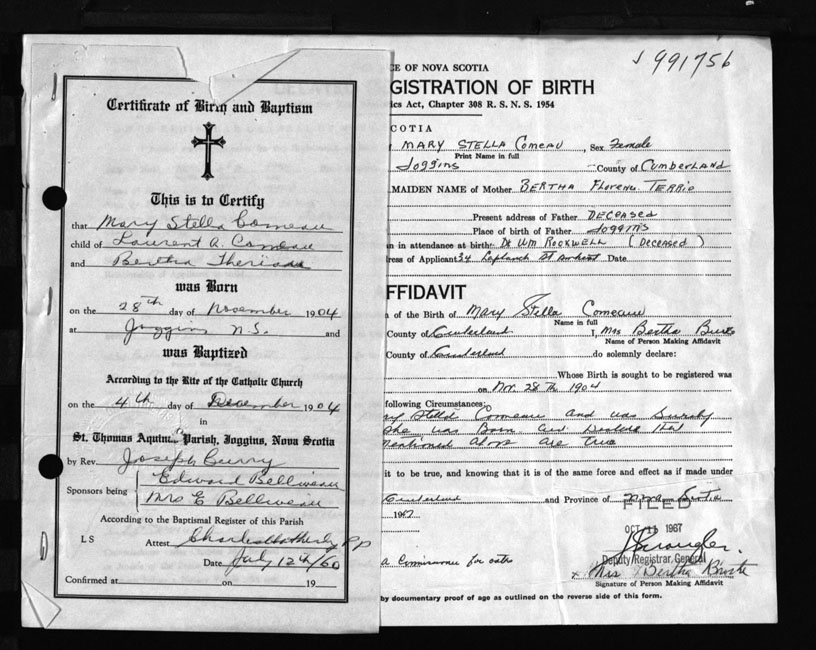 Certificate of Birth and Baptism
This is to Certify
that Mary Stella Comeau
child of Laurent A. Comeau
and Bertha Theriau
was Born
on the 28th day of November 1904
at Joggins N.S. and
was Baptized
According to the Rite of the Catholic Church
on the 4th day of December 1904
in
St. Thomas Aquin Parish, Joggins, Nova Scotia
by Rev. Joseph Curry
Edward Belliveau
Sponsors being
Mrs E Belliveau
According to the Baptismal Register of this Parish
LS Attest P P
Date July 12th/60
Confirmed at on 19
J 991756
CE OF NOVA SCOTIA
GISTRATION OF BIRTH
ics Act, Chapter 308 R. S. N. S. 1954
SCOTIA
MARY STELLA COMEAU, Sex Female
Print Name in full
Joggins County of CUMBERLAND
MAIDEN NAME of Mother BERTHA Florence TERRIO
Present address of Father DECEASED
Place of birth of Father JOGGINS
n in attendance at birth: Dr WM ROCKWELL (DECEASED)
ress of Applicant 34 St Amherst Date
FFIDAVIT
n of the Birth of Mary Stella Comeau
Name in full
County of Cumberland I, Mrs Bertha Burke
Name of Person Making Affidavit
County of Cumberland do solemnly declare:
Whose Birth is sought to be registered was
on Nov. 28th 1904
following Circumstances:
ry Stella Comeau and was
She was Born and that
mentioned above are true
it to be true, and knowing that it is of the same force and effect as if made under
Cumberland and Province of Nova Scotia
FILED
1967
OCT 11 1967
Deputy Registrar General
a Commissioner for oaths
x Mrs Bertha Burke
Signature of Person Making Affidavit
by documentary proof of age as outlined on the reverse side of this form.